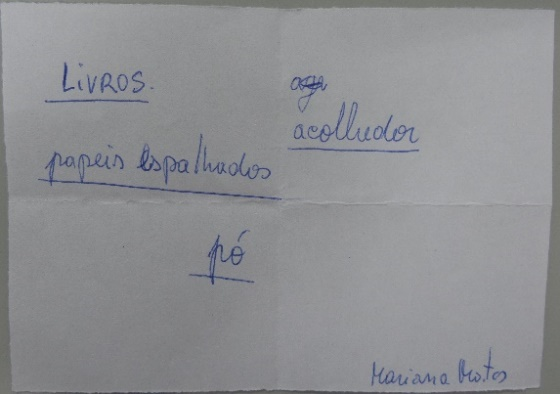 LiVROS.
acolhedor
papeis espalhados
pó
Mariana Matos